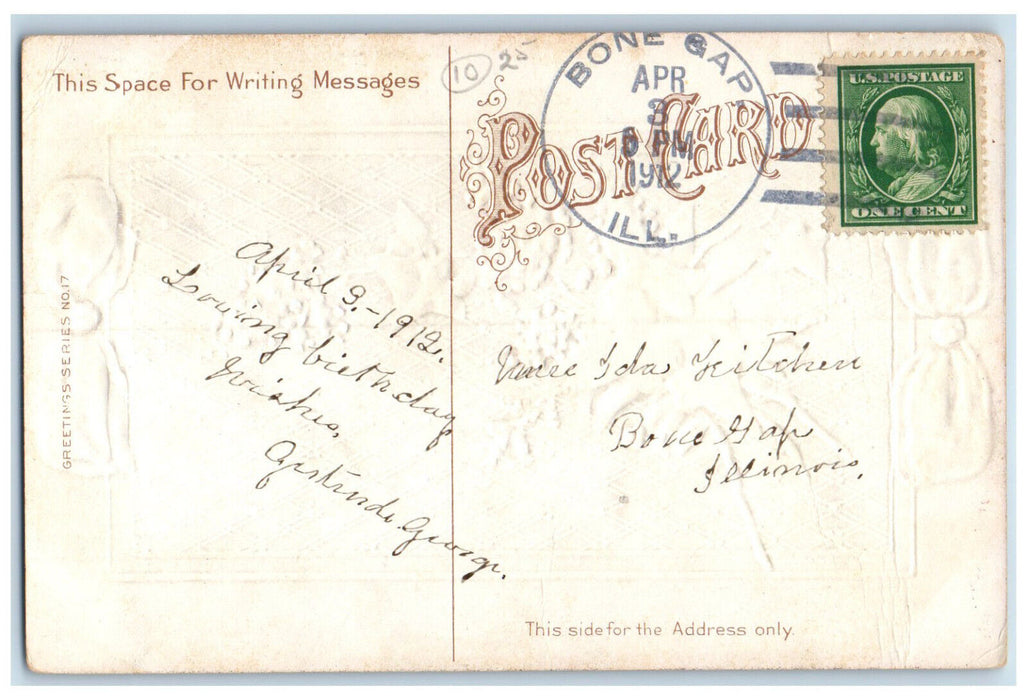 This Space For Writing Messages
10 25
POST CARD
BONE GAP
APR
3
6 PM
1912
ILL.
U.S. POSTAGE
ONE CENT
GREETINGS SERIES NO. 17
April 3.-1912.
Loving birthday
Wishes,
Gertrude George.
Ida Kitchen
Bone Gap
Illinois.
This side for the Address only.